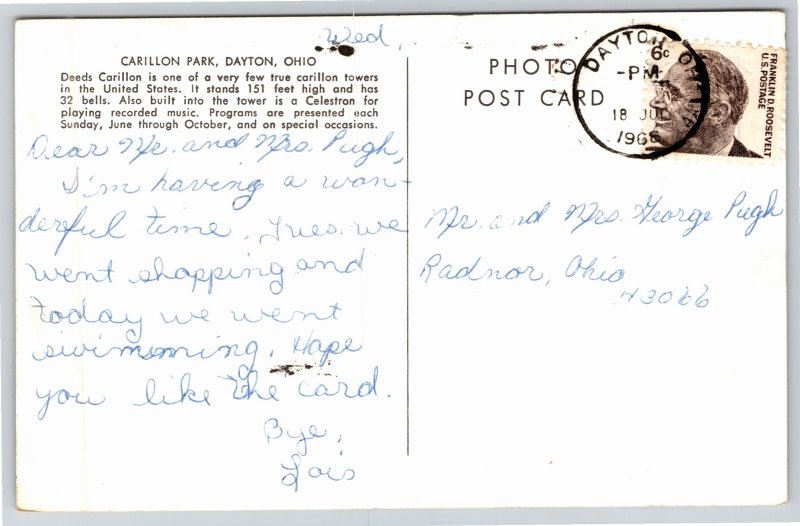 Wed.
CARILLON PARK, DAYTON, OHIO
Deeds Carillon is one of a very few true carillon towers
in the United States. It stands 151 feet high and has
32 bells. Also built into the tower is a Celestron for
playing recorded music. Programs are presented each
Sunday, June through October, and on special occasions.
Dear Mr. and Mrs. Pugh,
I'm having a won-
derful time. Tues. we
went shopping and
today we went
swimmming. Hope
you like the card.
Bye,
Lois
PHOTO
POST CARD
DAYTON, OHIO
-PM-
18 JUL
1968
6c
FRANKLIN D. ROOSEVELT
U.S. POSTAGE
Mr. and Mrs. George Pugh
Radnor, Ohio
43066